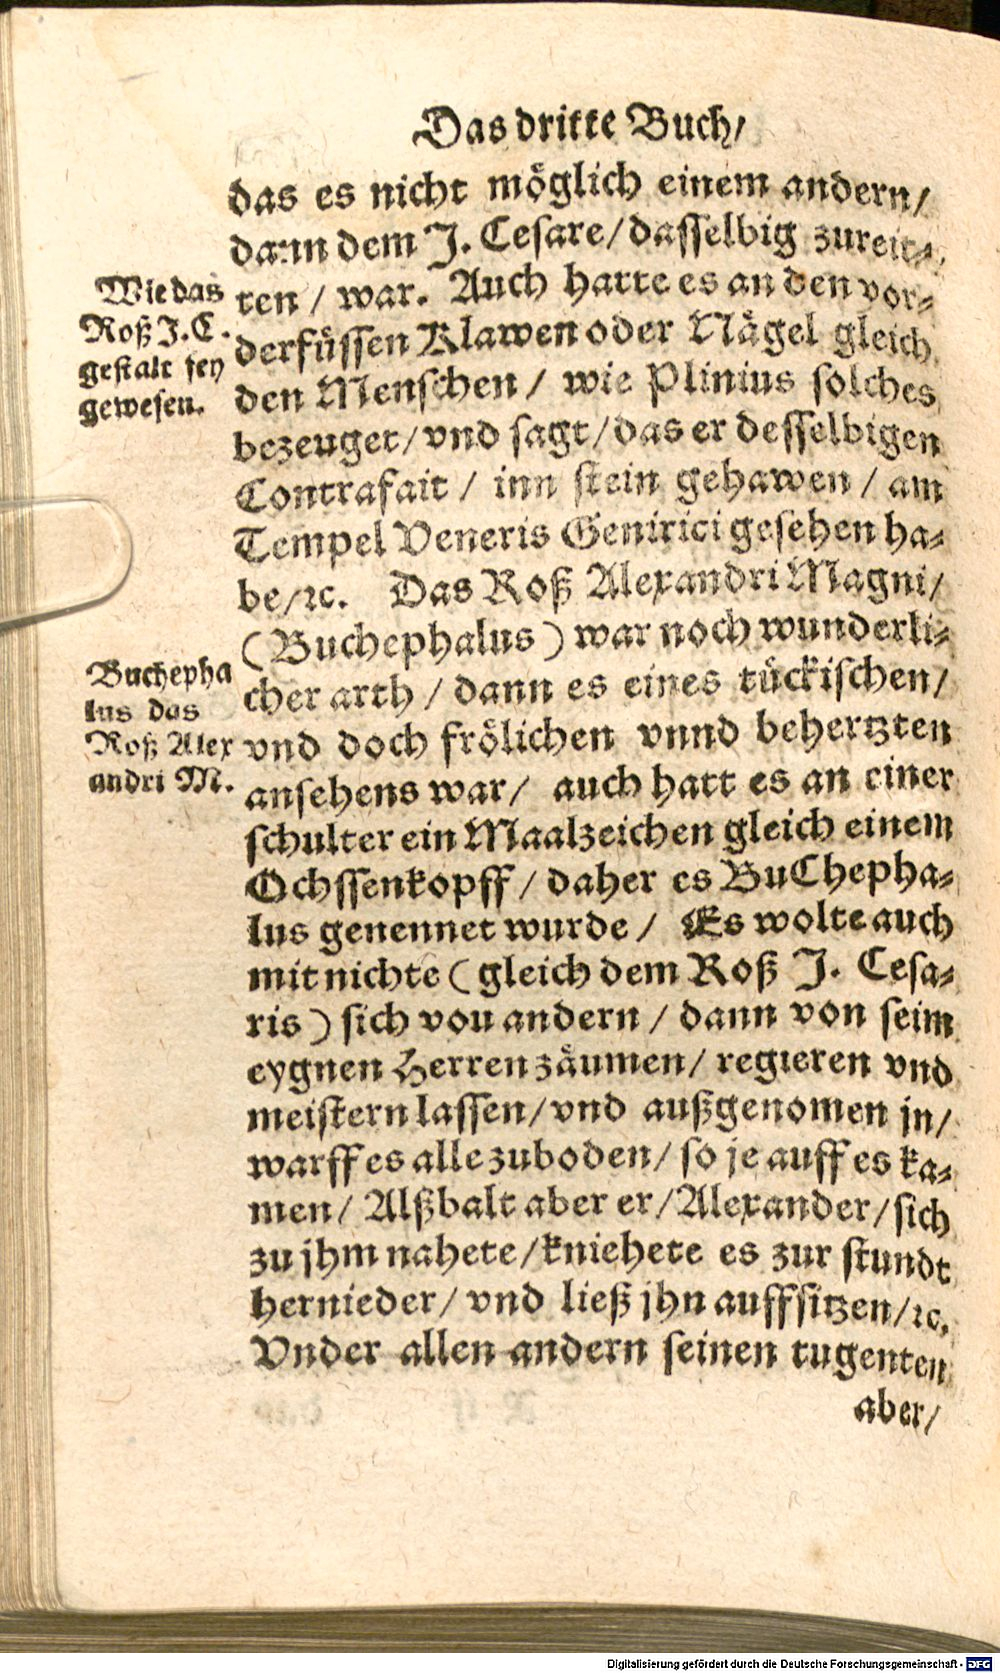 Das dritte Buch/
das es nicht möglich einem andern/
dann dem J. Cesare/dasselbig zureit-
ten / war. Auch hatte es an den vor-
derfüssen Klawen oder Nägel gleich
den Menschen / wie Plinius solches
bezeuget/vnd sagt/das er desselbigen
Contrafait / inn stein gehawen / am
Tempel Veneris Genitrici gesehen ha-
be/ꝛc. Das Roß Alexandri Magni/
(Buchephalus) war noch wunderli-
cher arth / dann es eines tückischen/
vnd doch frölichen vnnd behertzten
ansehens war/ auch hatt es an einer
schulter ein Maalzeichen gleich einem
Ochssenkopff / daher es BuChepha-
lus genennet wurde / Es wolte auch
mit nichte (gleich dem Roß J. Cesa-
ris) sich vou andern / dann von seim
eygnen Herren zäumen/ regieren vnd
meistern lassen/vnd außgenomen jn/
warff es alle zuboden/ so je auff es ka-
men/ Alßbalt aber er/Alexander/sich
zu jhm nahete/kniehete es zur stundt
hernieder/ vnd ließ jhn auffsitzen/ꝛc.
Vnder allen andern seinen tugenten
aber/
Wie das
Roß J.C.
gestalt sey
gewesen.
Buchepha
lus das
Roß Alex
andri M.
Digitalisierung gefördert durch die Deutsche Forschungsgemeinschaft - DFG